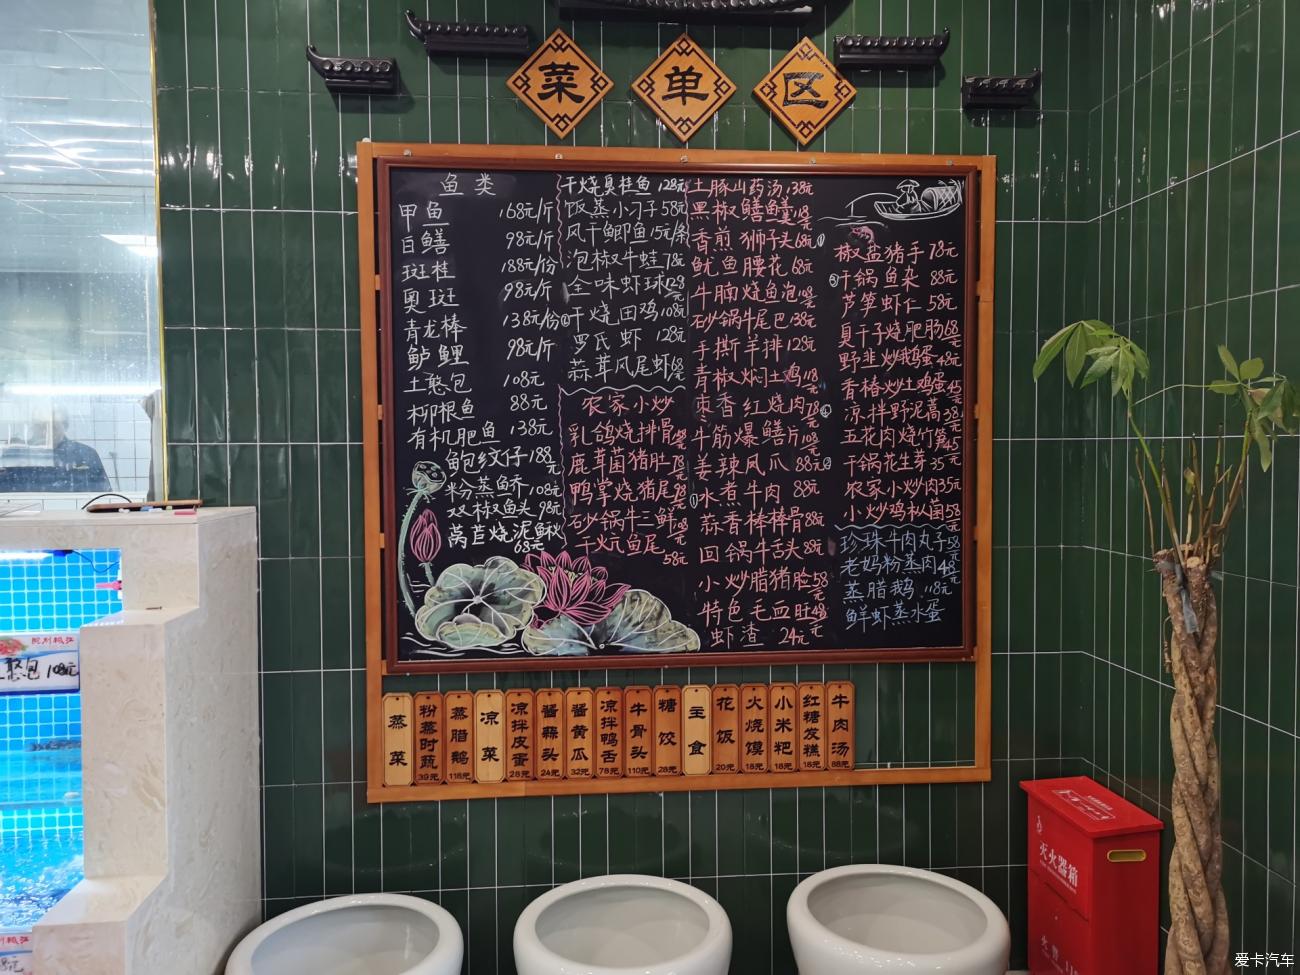 菜单区
鱼类
甲鱼 168元/斤
白鳝 98元/斤
斑桂 188元/份
奥斑 98元/斤
青龙棒 138元/份
鲈鲤 98元/斤
土憨包 108元
柳根鱼 88元
有机肥鱼 138元
鲍纹仔 188元
粉蒸鱼乔 108元
双椒鱼头 98元
莴苣烧泥鳅 68元
干烧臭桂鱼 128元
饭蒸小刁子 58元
风干鲫鱼 15元/条
泡椒牛蛙 78元
全味虾球 128元
干烧田鸡 108元
罗氏虾 128元
蒜茸凤尾虾 68元
农家小炒
乳鸽烧排骨
鹿茸菌猪肚 78元
鸭掌烧猪尾 98元
砂锅牛三鲜
干火亢鱼尾 58元
土豚山药汤 138元
黑椒鳝鱼羹 118元
香煎狮子头 68元
鱿鱼腰花 68元
牛腩烧鱼泡 108元
砂锅牛尾巴 138元
手撕羊排 128元
青椒焖土鸡 118元
枣香红烧肉 78元
牛筋爆鳝片 108元
姜辣凤爪 88元
水煮牛肉 88元
蒜香棒棒骨 88元
回锅牛舌头 88元
小炒腊猪脸 58元
特色毛血旺 48元
虾渣 24元
椒盐猪手 78元
干锅鱼杂 88元
芦笋虾仁 58元
臭干子烧肥肠 68元
野韭炒鹅蛋 48元
香椿炒土鸡蛋 45元
凉拌野泥蒿 38元
五花肉烧竹笋 45元
干锅花生芽 35元
农家小炒肉 35元
小炒鸡枞菌 58元
珍珠牛肉丸子 58元
老妈粉蒸肉 48元
蒸腊鹅 118元
鲜虾蒸水蛋
蒸菜
粉蒸时蔬 39元
蒸腊鹅 118元
凉菜
凉拌皮蛋 28元
酱藠头 24元
酱黄瓜 32元
凉拌鸭舌 78元
牛骨头 110元
糖饺 28元
主食
花饭 20元
火烧馍 18元
小米粑 18元
红糖发糕 18元
牛肉汤 88元
憨包 108元
灭火器箱
爱卡汽车